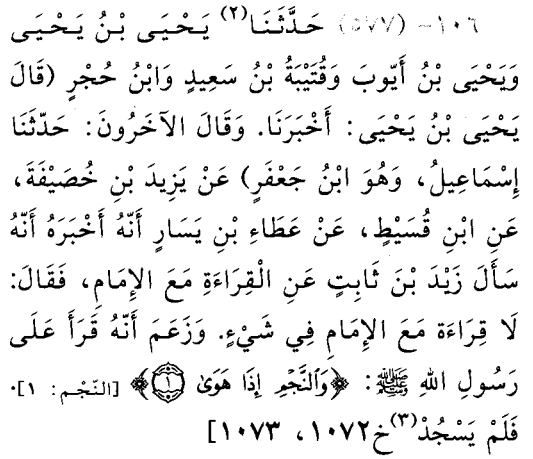 ١٠٦- (٥٧٧) حَدَّثَنَا(٢) يَحْيَى بْنُ يَحْيَى
وَيَحْيَى بْنُ أَيّوبَ وَقُتَيْبَةُ بْنُ سَعِيدٍ وَابْنُ حُجْرٍ (قَالَ
يَحْيَى بْنُ يَحْيَى: أَخْبَرَنَا. وَقَالَ الآخَرُونَ: حَدّثَنَا
إِسْمَاعِيلُ، وَهُوَ ابْنُ جَعْفَرٍ) عَنْ يَزِيدَ بْنِ خُصَيْفَةَ،
عَنِ ابْنِ قُسَيْطٍ، عَنْ عَطَاءِ بْنِ يَسَارٍ أَنّهُ أَخْبَرَهُ أَنّهُ
سَأَلَ زَيْدَ بْنَ ثَابِتٍ عَنِ الْقِرَاءَةِ مَعَ الإِمَامِ، فَقَالَ:
لَا قِرَاءَة مَعَ الإِمَامِ فِي شَيْءٍ. وَزَعَمَ أَنّهُ قَرَأَ عَلَى
رَسُولِ اللهِ ﷺ: ﴿وَالنَّجْمِ إِذَا هَوَىٰ ١﴾ [النّجْم: ١].
فَلَمْ يَسْجُدْ(٣)خ١٠٧٢، ١٠٧٣]